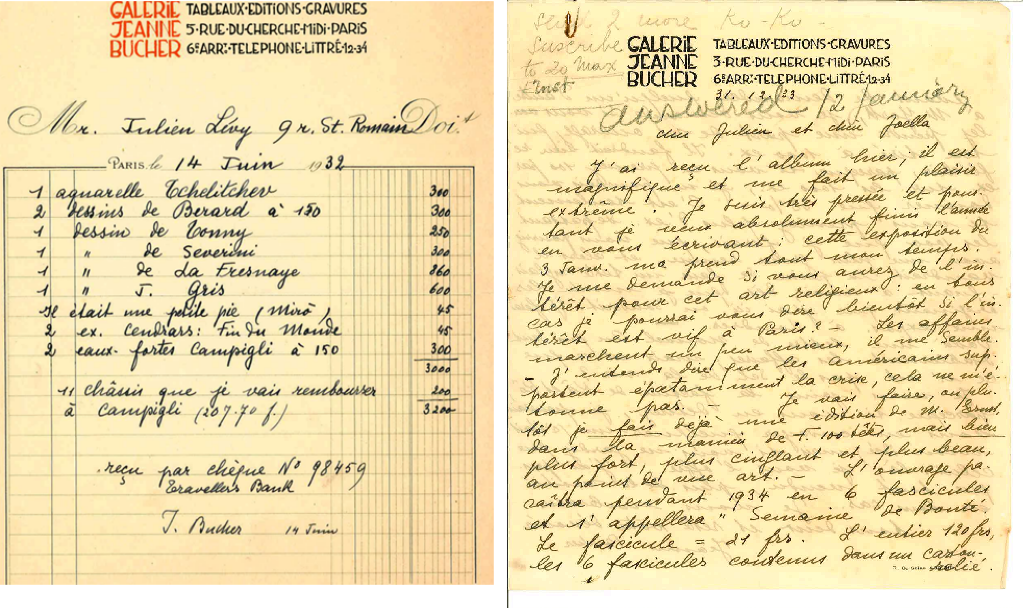 GALERIE TABLEAUX·EDITIONS·GRAVURES
JEANNE 5·RUE·DU·CHERCHE·MIDI·PARIS
BUCHER 6E ARRt·TELEPHONE·LITTRÉ·12-34
Mr. Julien Lévy 9 r. St. Romain Doit
PARIS, le 14 Juin 1932
1 aquarelle Tchelitchev 300
2 dessins de Berard à 150 300
1 dessin de Tonny 250
1 " de Severini 300
1 " de La Fresnaye 860
1 " J. Gris 600
Il était une petite pie (Miró) 45
2 ex. Cendrars: Fin du Monde 45
2 eaux-fortes Campigli à 150 300
3000
11 châssis que je vais rembourser 200
à Campigli (207.70 f.) 3200
reçu par chèque No 98459
Travellers Bank
J. Bucher 14 Juin
Send 2 more Ko-Ko-
Suscribe
to 20 Max
Ernst
GALERIE TABLEAUX·EDITIONS·GRAVURES
JEANNE 3·RUE·DU·CHERCHE·MIDI·PARIS
BUCHER 6E ARRt·TELEPHONE·LITTRÉ·12-34
31. 12. 33
answered 12 January
cher Julien et chère Joella
J'ai reçu l'album hier; il est
magnifique et me fait un plaisir
extrême. Je suis très pressée et pour
tant je veux absolument finir l'année
en vous écrivant: cette exposition du
3 Janv. me prend tout mon temps.
Je me demande si vous aurez de l'in
térêt pour cet art religieux: en tous
cas je pourrai vous dire bientôt si l'in
térêt est vif à Paris? - Les affaires
marchent un peu mieux, il me semble.
J'entends dire que les américains sup
portent épatamment la crise, cela ne m'é
tonne pas. - Je vais faire, ou plu
tôt je fais déjà une édition de M. Ernst,
dans la manière de F. 100 têtes, mais bien
plus fort, plus cinglant et plus beau,
au point de vue art. - L'ouvrage pa
raîtra pendant 1934 en 6 fascicules
et s'appellera "Semaine de Bonté.
Le fascicule = 21 frs. L'entier 120 frs,
les 6 fascicules contenus dans un carton-
relié.